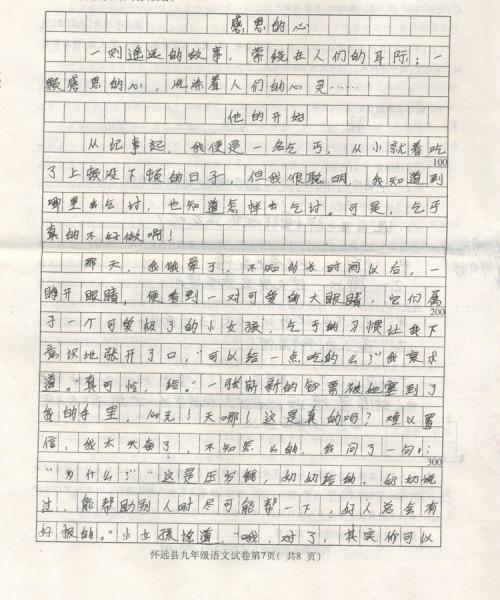 感恩的心
一则遥远的故事，萦绕在人们的耳际；一
颗感恩的心，洗涤着人们的心灵……
他的开始
从记事起，我便是一名乞丐，从小就着吃
100
了上顿没下顿的日子，但我很聪明，我知道到
哪里去乞讨，也知道怎样去乞讨。可是，乞丐
真的不好做啊！
那天，我饿晕了，不知多长时间以后，一
睁开眼睛，便看到一对可爱的大眼睛，它们属
200
于一个可爱极了的小女孩，乞丐的习惯让我下
意识地张开了口，“可以给一点吃的么？”我哀求
道。“真可怜，给。”一张崭新的钞票被她塞到了
我的手里。100元！天哪！这是真的吗？难以置
信，我太兴奋了，不知怎么的，我问了一句：
300
“为什么？”“这是压岁钱，奶奶给的，奶奶说
过，能帮助别人时尽可能帮一下，好人总会有
好报的。”小女孩说道，“哦，对了，其实你可以
怀远县九年级语文试卷第7页（共8页）